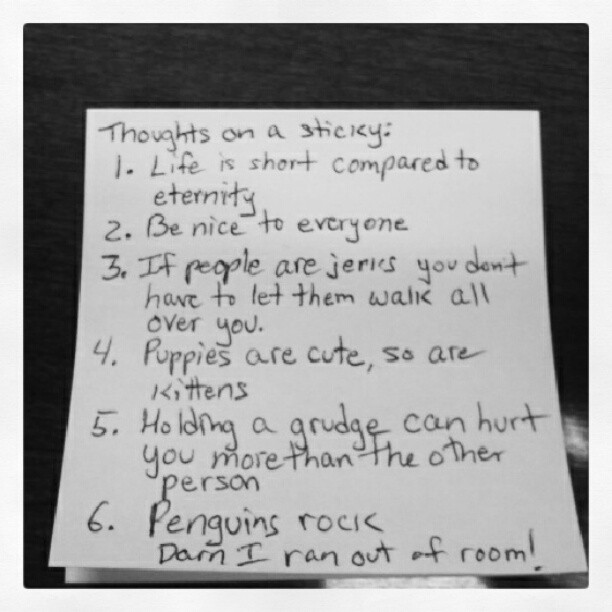 Thoughts on a sticky:
1. Life is short compared to
eternity
2. Be nice to everyone
3. If people are jerks you don't
have to let them walk all
over you.
4. Puppies are cute, so are
kittens
5. Holding a grudge can hurt
you more than the other
person
6. Penguins rock
Darn I ran out of room!